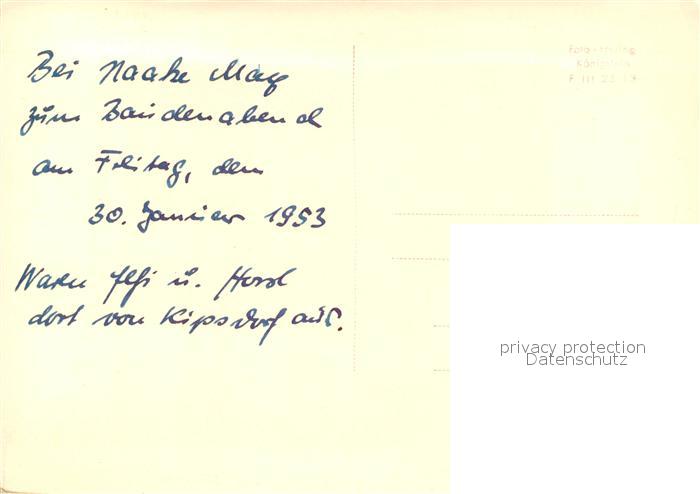 Bei Naake Max
zum Baudenabend
am Freitag, dem
30. Januar 1953
Waren u. Horst
dort von Kipsdorf aus.
Königstein
F III 23
privacy protection
Datenschutz